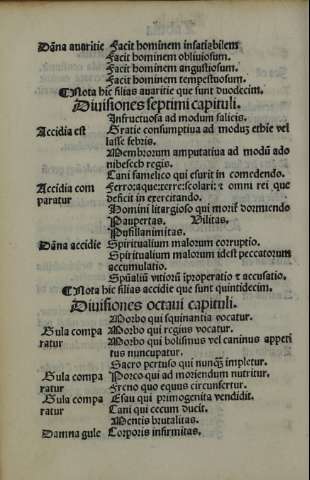 Dāna avaritie Facit hominem insatiabilem
Facit hominem obliviosum.
Facit hominem angustiosum.
Facit hominem tempestuosum.
¶Nota hic filias avaritie que sunt duodecim.
Divisiones septimi capituli.
Infructuosa ad modum salicis.
Accidia est Gratie consumptiva ad moduꝫ ethice vel
lasse febris.
Membrorum amputativa ad modū ado
nibesech regis.
Cani famelico qui esurit in comedendo.
Accidia com Ferro: aque: terre: scolari: ⁊ omni rei que
paratur deficit in exercitando.
Homini litargioso qui morit̄ dormiendo
Paupertas. Vilitas.
Pusillanimitas.
Dāna accidie Spiritualium malorum corruptio.
Spiritualium malorum idest peccatorum
accumulatio.
Spūaliū vitiorū īproperatio ⁊ accusatio.
¶Nota hic filias accidie que sunt quindecim.
Divisiones octavi capituli.
Morbo qui squinantia vocatur.
Gula compa Morbo qui regius vocatur.
ratur Morbo qui bolismus vel caninus appeti
tus nuncupatur.
Sacco pertuso qui nunqꝫ impletur.
Gula compa Porco qui ad moriendum nutritur.
ratur Freno quo equus circunfertur.
Gula compa Esau qui primogenita vendidit.
ratur Cani qui cecum ducit.
Mentis brutalitas.
Damna gule Corporis infirmitas.